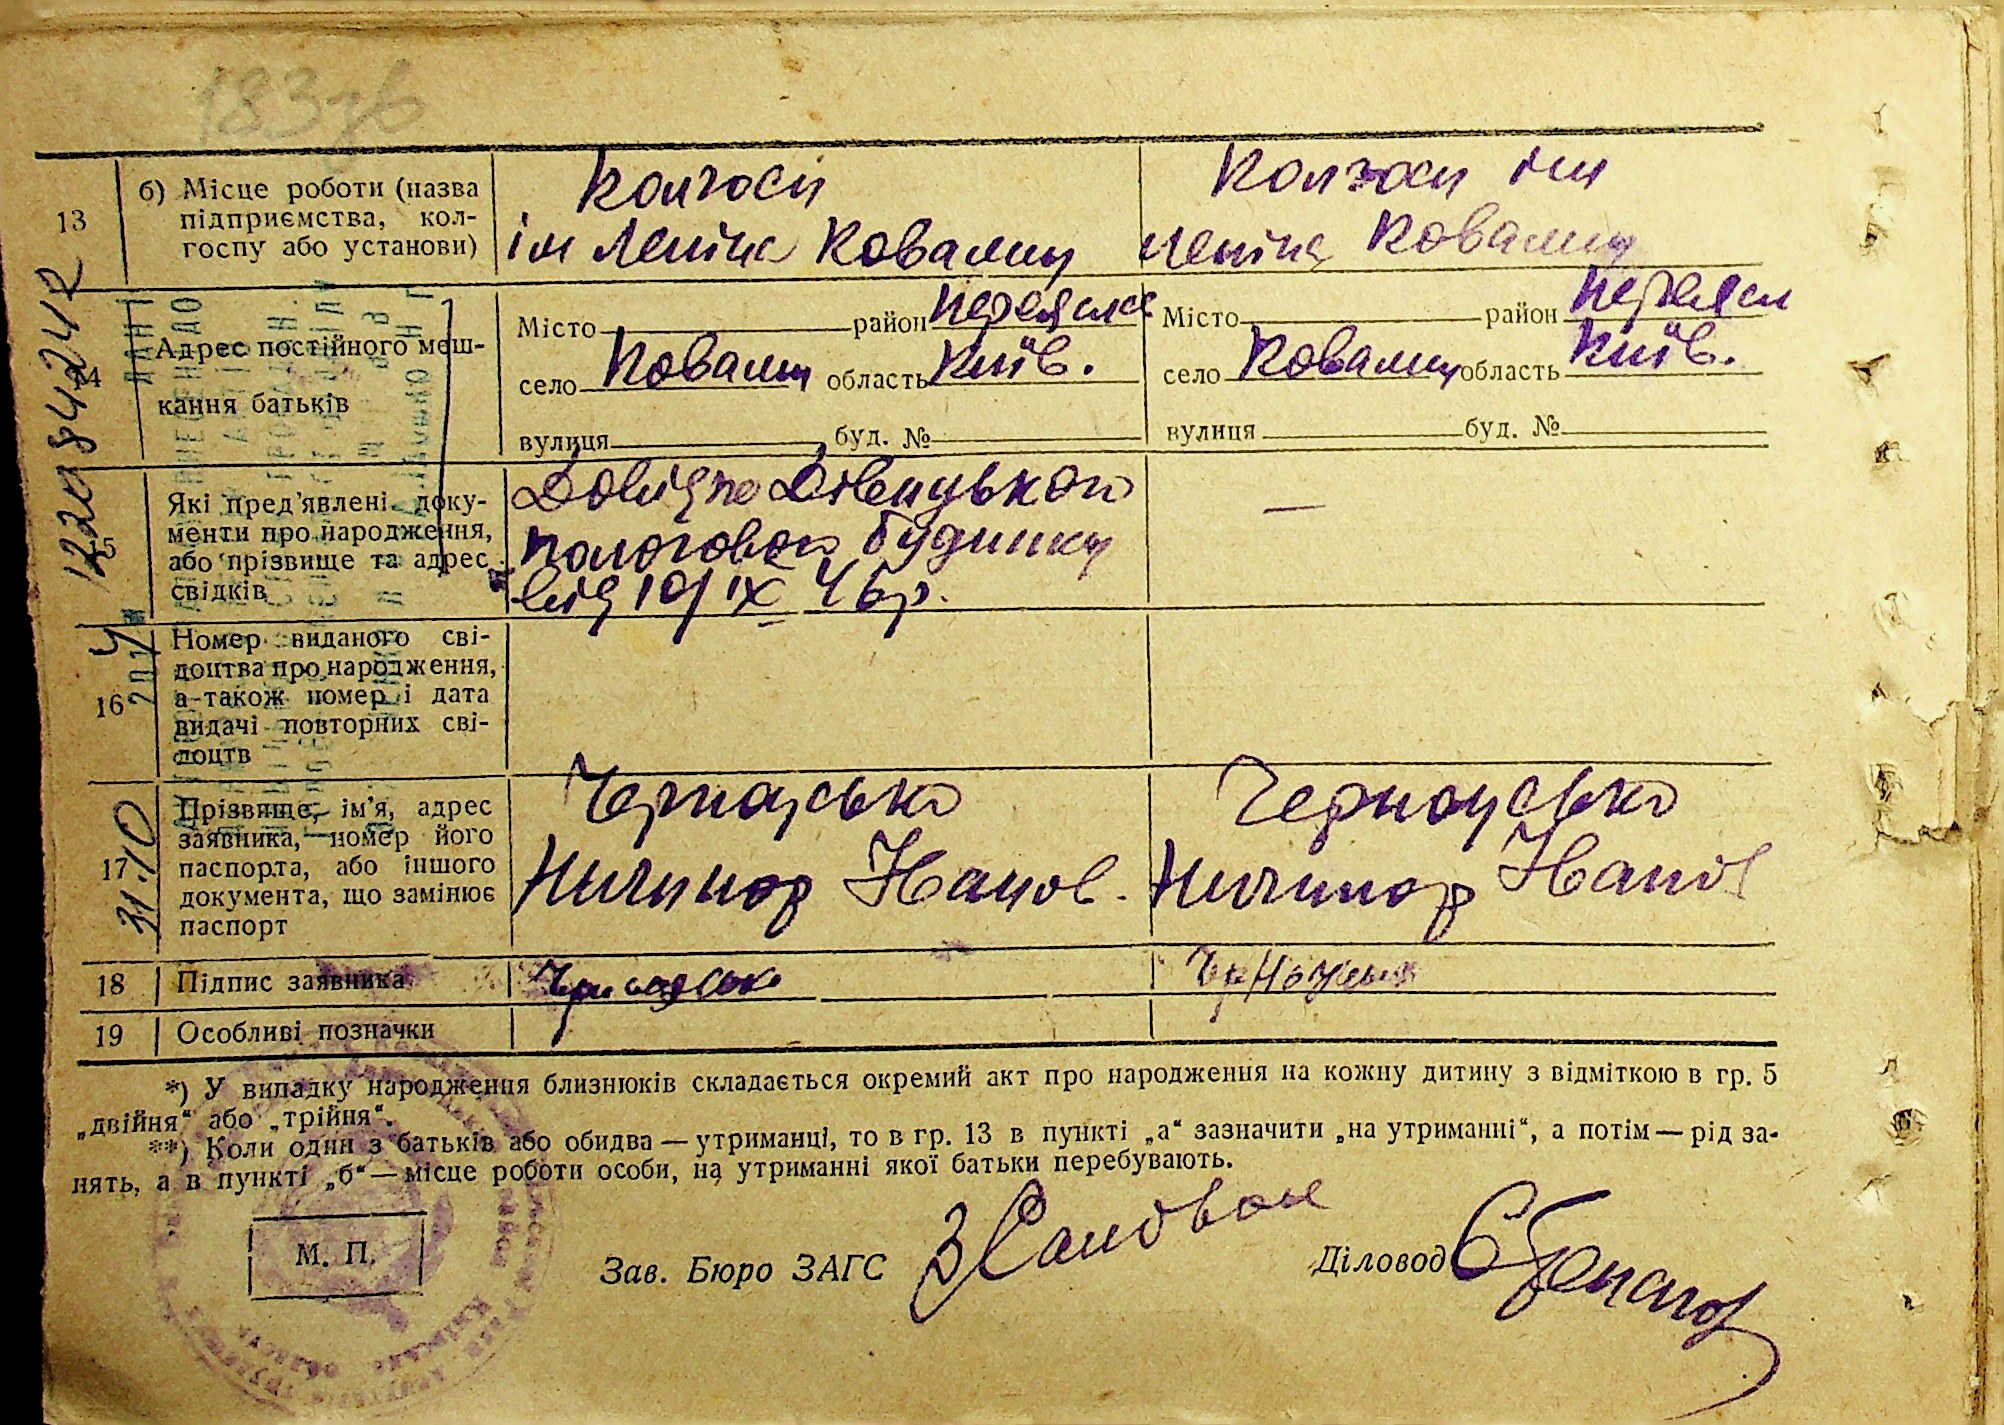 183зв
13
б) Місце роботи (назва
підприємства, кол-
госпу або установи)
Колгосп
ім Леніна Ковалин
Колгосп ім
Леніна Ковалин
14
Адрес постійного меш-
кання батьків
Місто район Переясл
село Ковалин область Київ.
вулиця буд. №
Місто район Переясл
село Ковалин область Київ.
вулиця буд. №
15
Які пред'явлені доку-
менти про народження,
або прізвище та адрес
свідків
Довідка Дівицького
пологового будинку
від 10/IX 46р.
—
16
Номер виданого сві-
доцтва про народження,
а також номер і дата
видачі повторних сві-
доцтв
17
Прізвище, ім'я, адрес
заявника, номер його
паспорта, або іншого
документа, що замінює
паспорт
Черноусько
Ничипор Іванов.
Черноусько
Ничипор Іванов
18
Підпис заявника
Черноусько
19
Особливі позначки
*) У випадку народження близнюків складається окремий акт про народження на кожну дитину з відміткою в гр. 5
„двійня“ або „трійня“.
**) Коли один з батьків або обидва — утриманці, то в гр. 13 в пункті „а“ зазначити „на утриманні“, а потім — рід за-
нять, а в пункті „б“ — місце роботи особи, на утриманні якої батьки перебувають.
М. П.
Зав. Бюро ЗАГС
Діловод
31.10